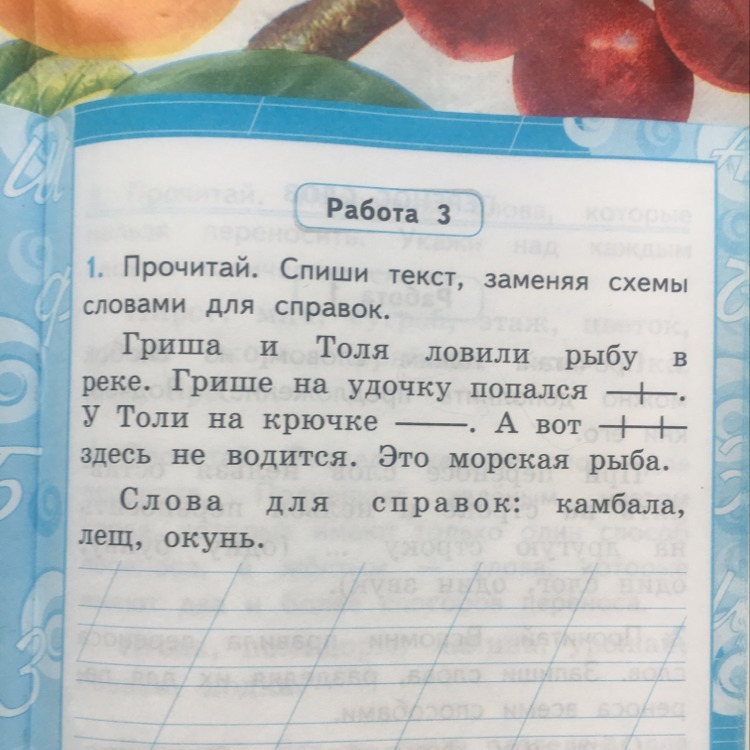 Работа 3
1. Прочитай. Спиши текст, заменяя схемы
словами для справок.
Гриша и Толя ловили рыбу в
реке. Грише на удочку попался .
У Толи на крючке . А вот
здесь не водится. Это морская рыба.
Слова для справок: камбала,
лещ, окунь.